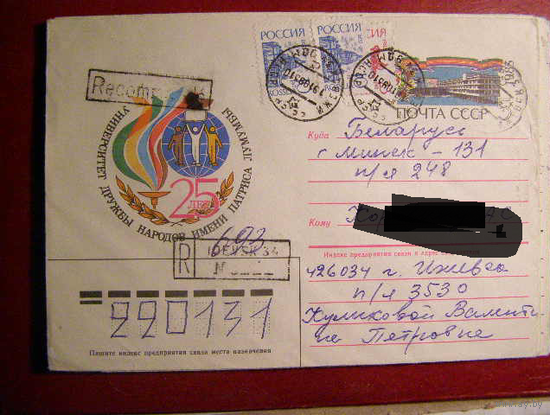 РОССИЯ РОССИЯ
Recom
УНИВЕРСИТЕТ ДРУЖБЫ НАРОДОВ ИМЕНИ ПАТРИСА ЛУМУМБЫ
25
ЛЕТ
1985
ПОЧТА СССР
Куда Беларусь
г. Минск - 131
п/я 248
Кому
Индекс предприятия связи и адрес
426034 г. Ижевск
п/я 3530
Куликовой Валенти-
не Петровне
693
R
ИЖЕВСК 34
N
220131
Пишите индекс предприятия связи места назначения